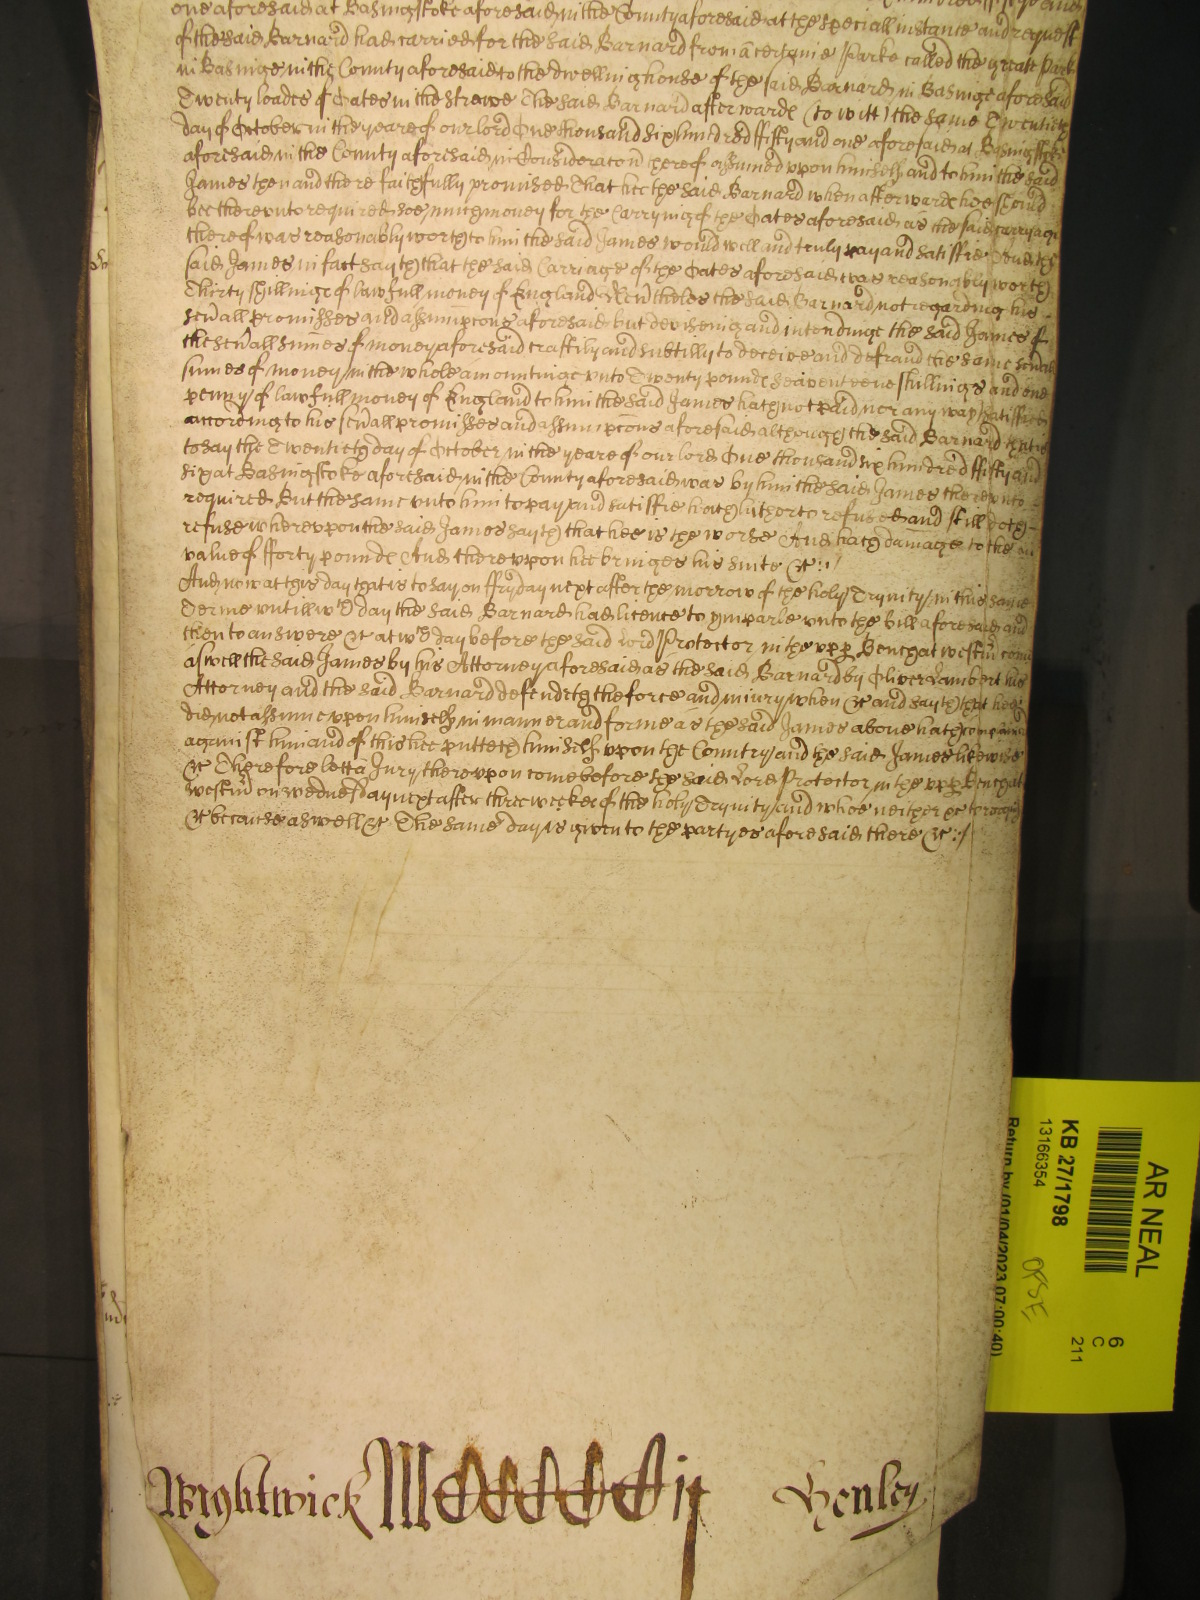 one aforesaid at Basingstoke aforesaid in the County aforesaid at the speciall instance and request
of the said Barnard had carried for the said Barnard from a certaine Parke called the greate Park
in Basinge in the County aforesaid to the dwellinghouse of the said Barnard in Basinge aforesaid
Twenty loades of Oates in the strawe The said Barnard afterwards (to witt) the same Twentieth
day of October in the yeare of our lord One thousand six hundred fifty and one aforesaid at Basingstoke
aforesaid in the County aforesaid in Consideracon thereof assumed upon himself and to him the said
James then and there faithfully promised That hee the said Barnard when afterwards hee should
bee thereunto required soe much money for the Carrying of the Oates aforesaid as the said carryage
thereof was reasonably worth to him the said James would well and truly pay and satisfie And the
said James in fact sayth that the said Carriage of the Oates aforesaid was reasonably worth
Thirty shillings of lawfull money of England Nevertheles the said Barnard not regarding his
sevall promisses and assumpcons aforesaid but deviseing and intendinge the said James of
the sevall summes of money aforesaid craftily and subtilly to deceive and defraud the same sevall
summes of money in the whole amountinge unto Twenty pounds seaventeene shillings and one
penny of lawfull money of England to him the said James hath not paid nor any way satisfied
according to his sevall promisses and assumpcons aforesaid although the said Barnard that is
to say the Twentieth day of October in the yeare of our lord One thousand six hundred fifty and
six at Basingstoke aforesaid in the County aforesaid was by him the said James thereunto
required But the same unto him to pay and satisfie hath hitherto refused and still doth
refuse whereupon the said James sayth that hee is the worse And hath damage to the
value of fforty pounds And thereupon hee bringes his suite &c
And now at this day that is to say on ffryday next after the morrow of the holy Trynity in this same
Terme untill wch day the said Barnard had licence to imparle unto the bill aforesaid and
then to answere &c at wch day before the said Lord Protector in the upp Bench at Westm come
aswell the said James by his Attorney aforesaid as the said Barnard by Oliver Lambert his
Attorney and the said Barnard defendeth the force and injury when &c and sayth that hee
did not assume upon himself in manner and forme as the said James above hath complained
against him and of this hee putteth himself upon the Country and the said James likewise
&c Therefore lett a Jury thereupon come before the said Lord Protector in the upp Bench at
Westm on Wednesday next after three weekes of the holy Trynity and whoe neither &c to recog
&c because aswell &c The same day is given to the partyes aforesaid there &c
Wightwick MCCCCCij Henley
AR NEAL
KB 27/1798
13166354
Return by (01/04/2023 07:00:40)
6
C
211